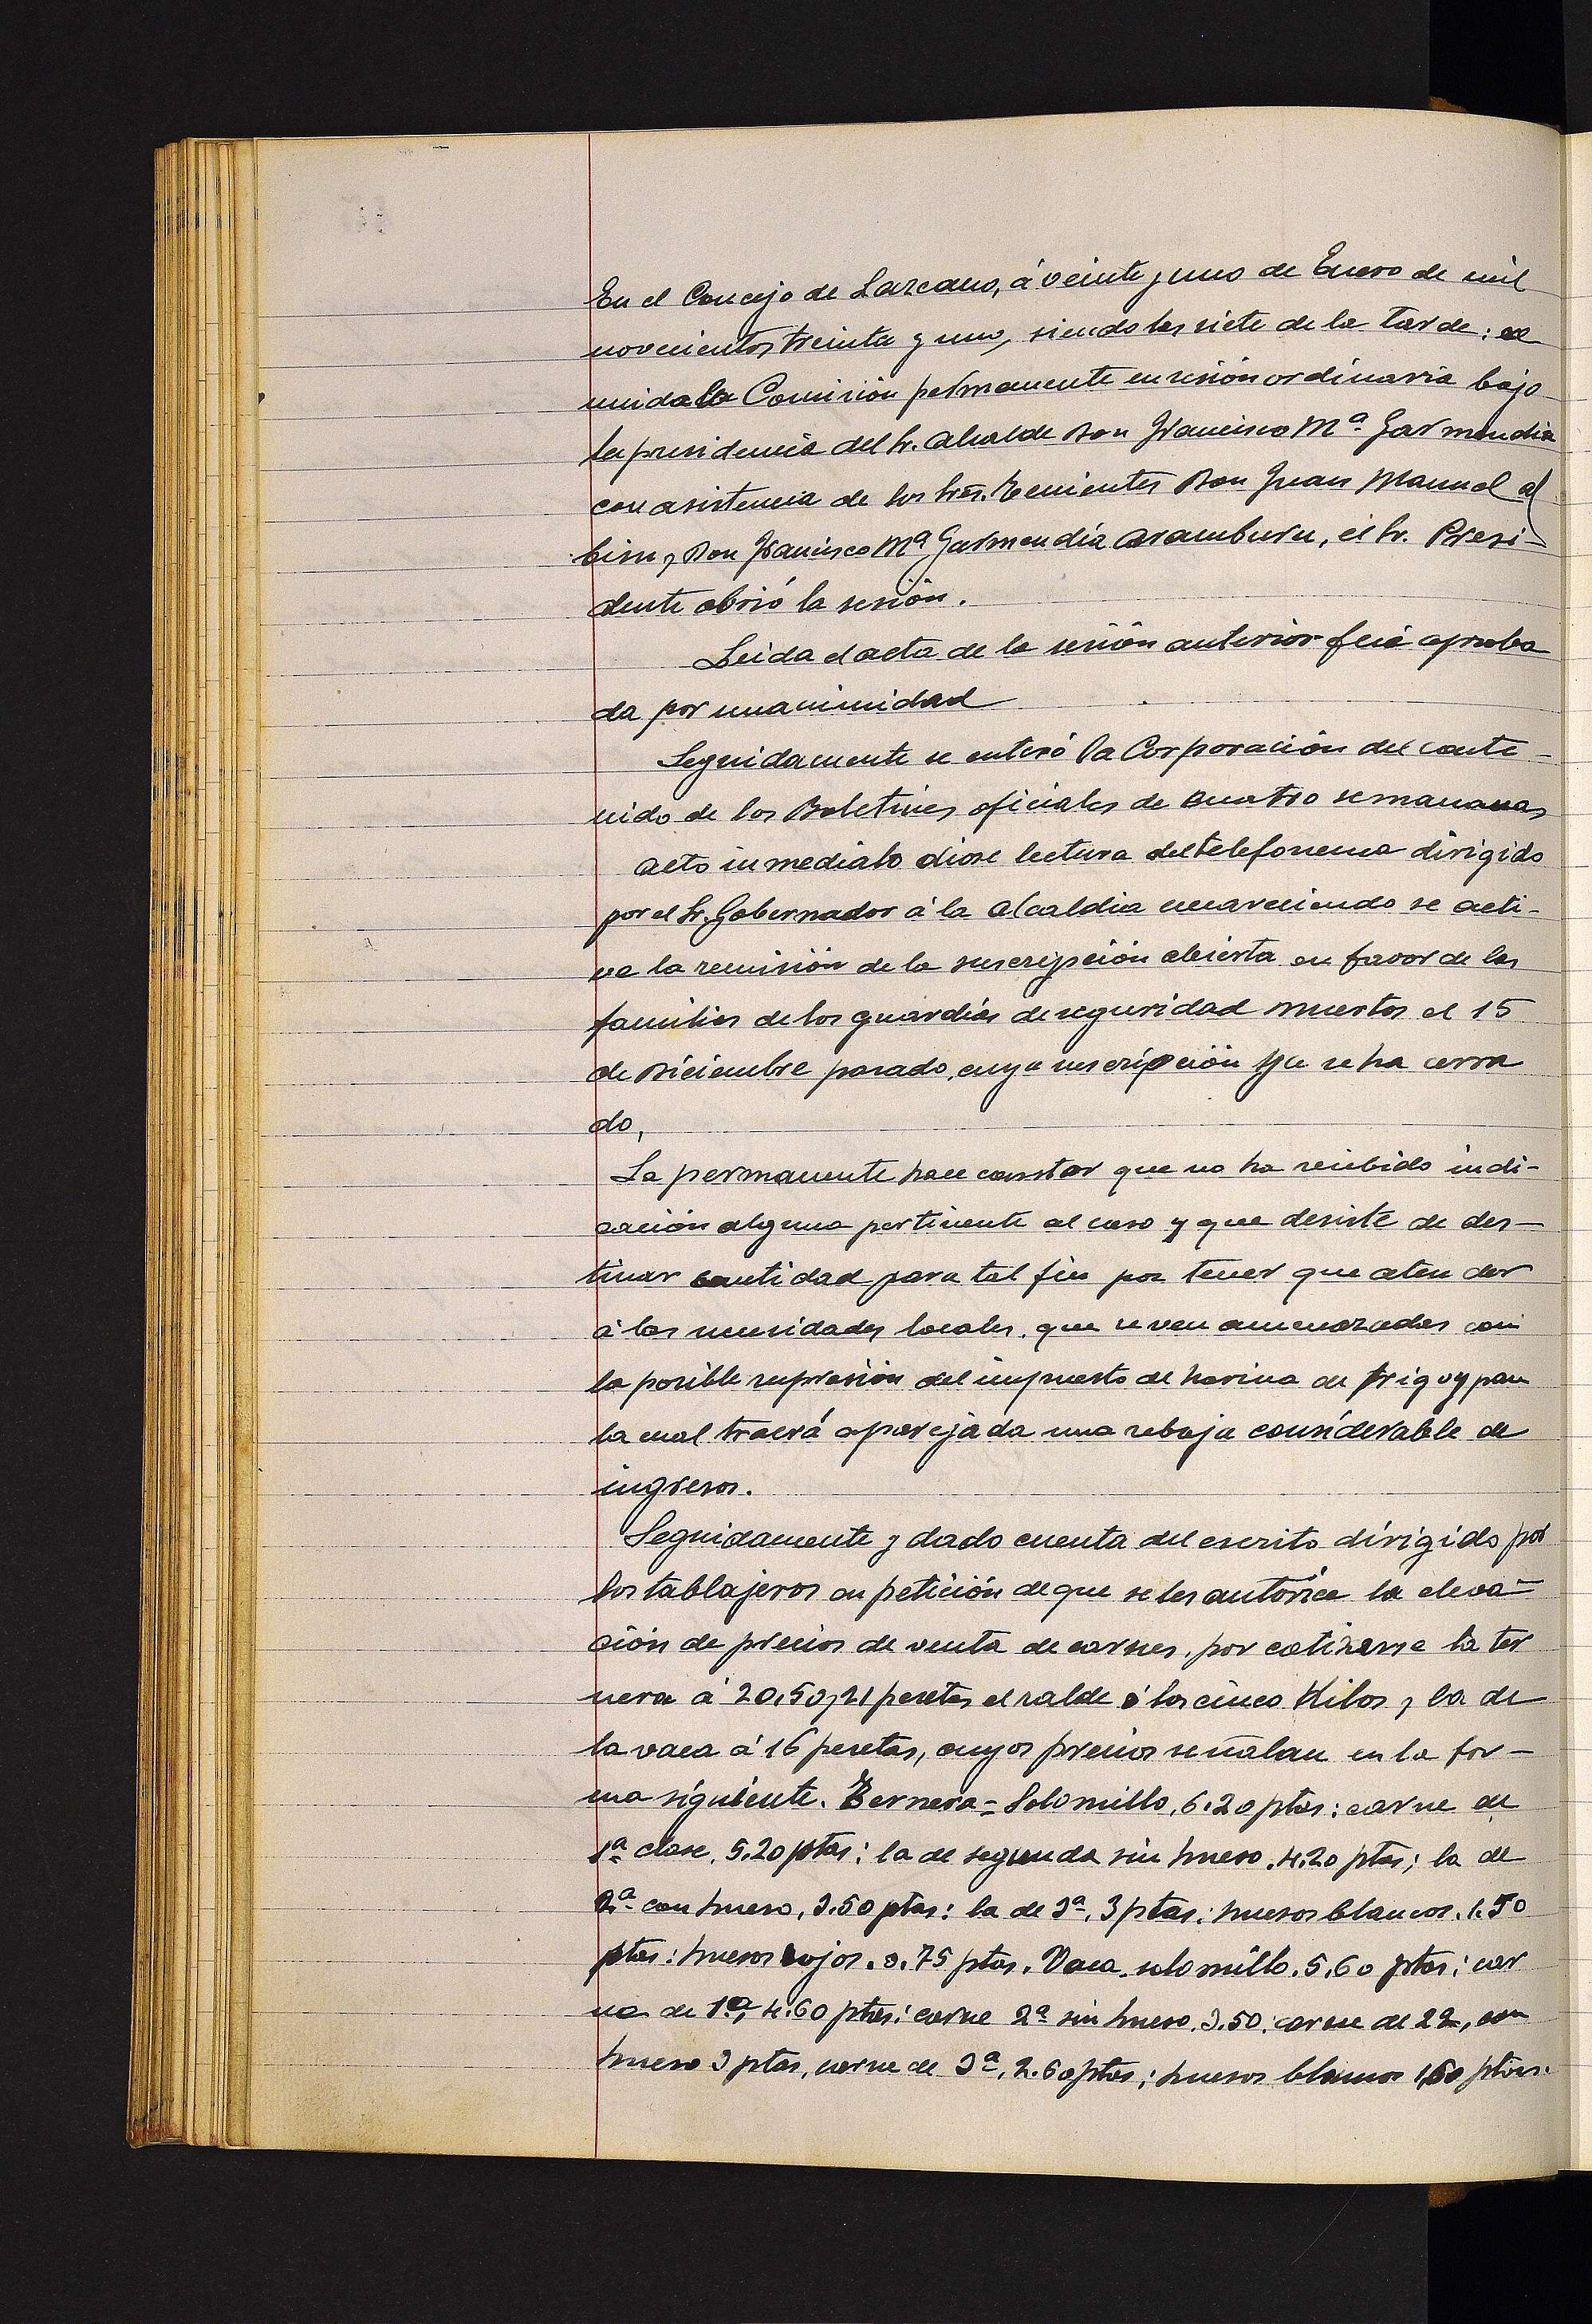 En el Concejo de Lazcano, á veinte y uno de Enero de mil
novecientos treinta y uno, siendo las siete de la tarde: re
unida la Comisión permanente en sesión ordinaria bajo
la presidencia del Sr. Alcalde Don Francisco Mª. Garmendia
con asistencia de los Sres. Tenientes Don Juan Manuel Al
bisu y Don Francisco Mª Garmendia Aramburu, el Sr. Presi-
dente abrió la sesión.
Leida el acta de la sesión anterior fué aproba
da por unanimidad
Seguidamente se enteró la Corporación del conte-
nido de los Boletines oficiales de cuatro semananas
Acto inmediato diose lectura del telefonema dirigido
por el Sr. Gobernador á la Alcaldia encareciendo se acti-
ve la remisión de la suscripción abierta en favor de las
familias de los guardias de seguridad muertos el 15
de Diciembre pasado, cuya suscripción ya se ha cerra
do,
La permanente hace constar que no ha recibido indi-
cación alguna pertinente al caso y que desiste de des-
tinar cantidad para tal fin por tener que atender
á las necesidades locales, que se ven amenazadas con
la posible supresión del impuesto de harina de trigo y pan
la cual traerá aparejada una rebaja considerable de
ingresos.
Seguidamente y dado cuenta del escrito dirigido por
los tablajeros en petición de que se les autorice la eleva-
ción de precios de venta de carnes, por cotizarse la ter
nera á 20,50 y 21 pesetas el ralde ó los cinco Kilos y la de
la vaca á 16 pesetas, cuyos precios señalan en la for-
ma siguiente. Ternera = Solomillo, 6.20 ptas: carne de
1ª clase, 5,20 ptas: la de segunda sin hueso, 4,20 ptas; la de
2ª con hueso, 3.50 ptas: la de 3ª, 3 ptas: huesos blancos, 1.50
ptas: huesos rojos. 0.75 ptas. Vaca. solomillo. 5,60 ptas: car
ne de 1ª, 4.60 ptas: carne 2ª sin hueso. 3.50. carne de 2ª, con
hueso 3 ptas, carne de 3ª, 2.60 ptas; huesos blancos 1,50 ptas.